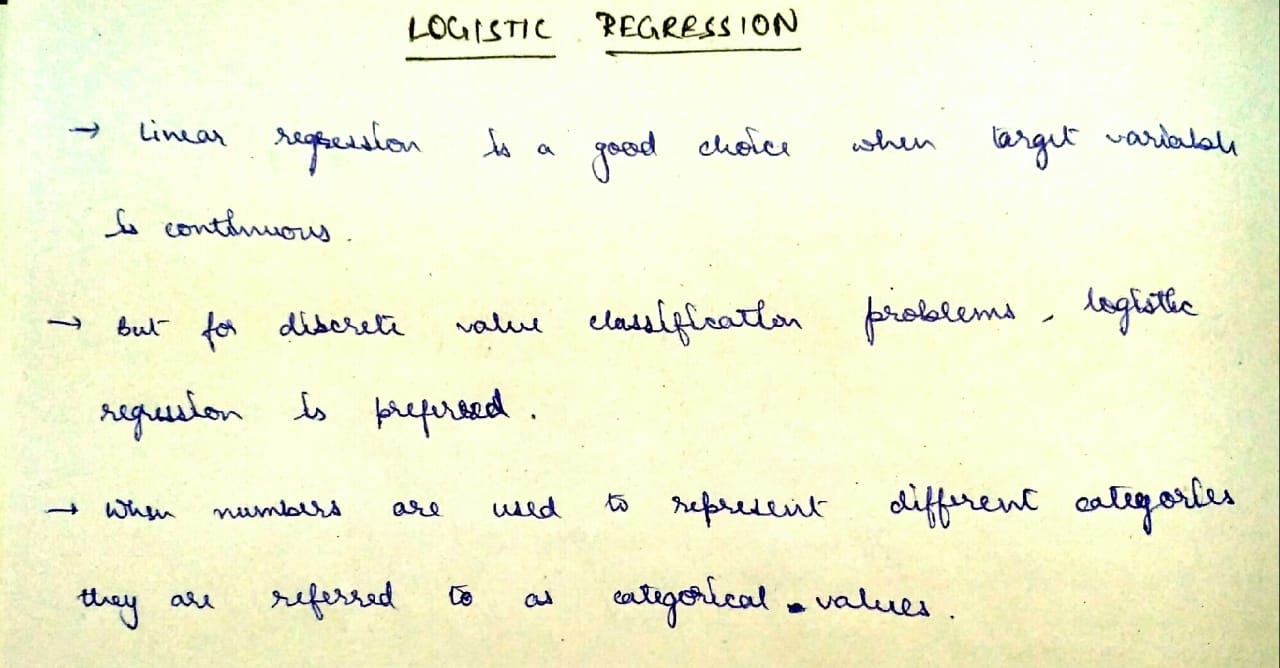 LOGISTIC REGRESSION
→ Linear regression is a good choice when target variable
is continuous.
→ But for discrete value classification problems, logistic
regression is preferred.
→ When numbers are used to represent different categories
they are referred to as categorical values.